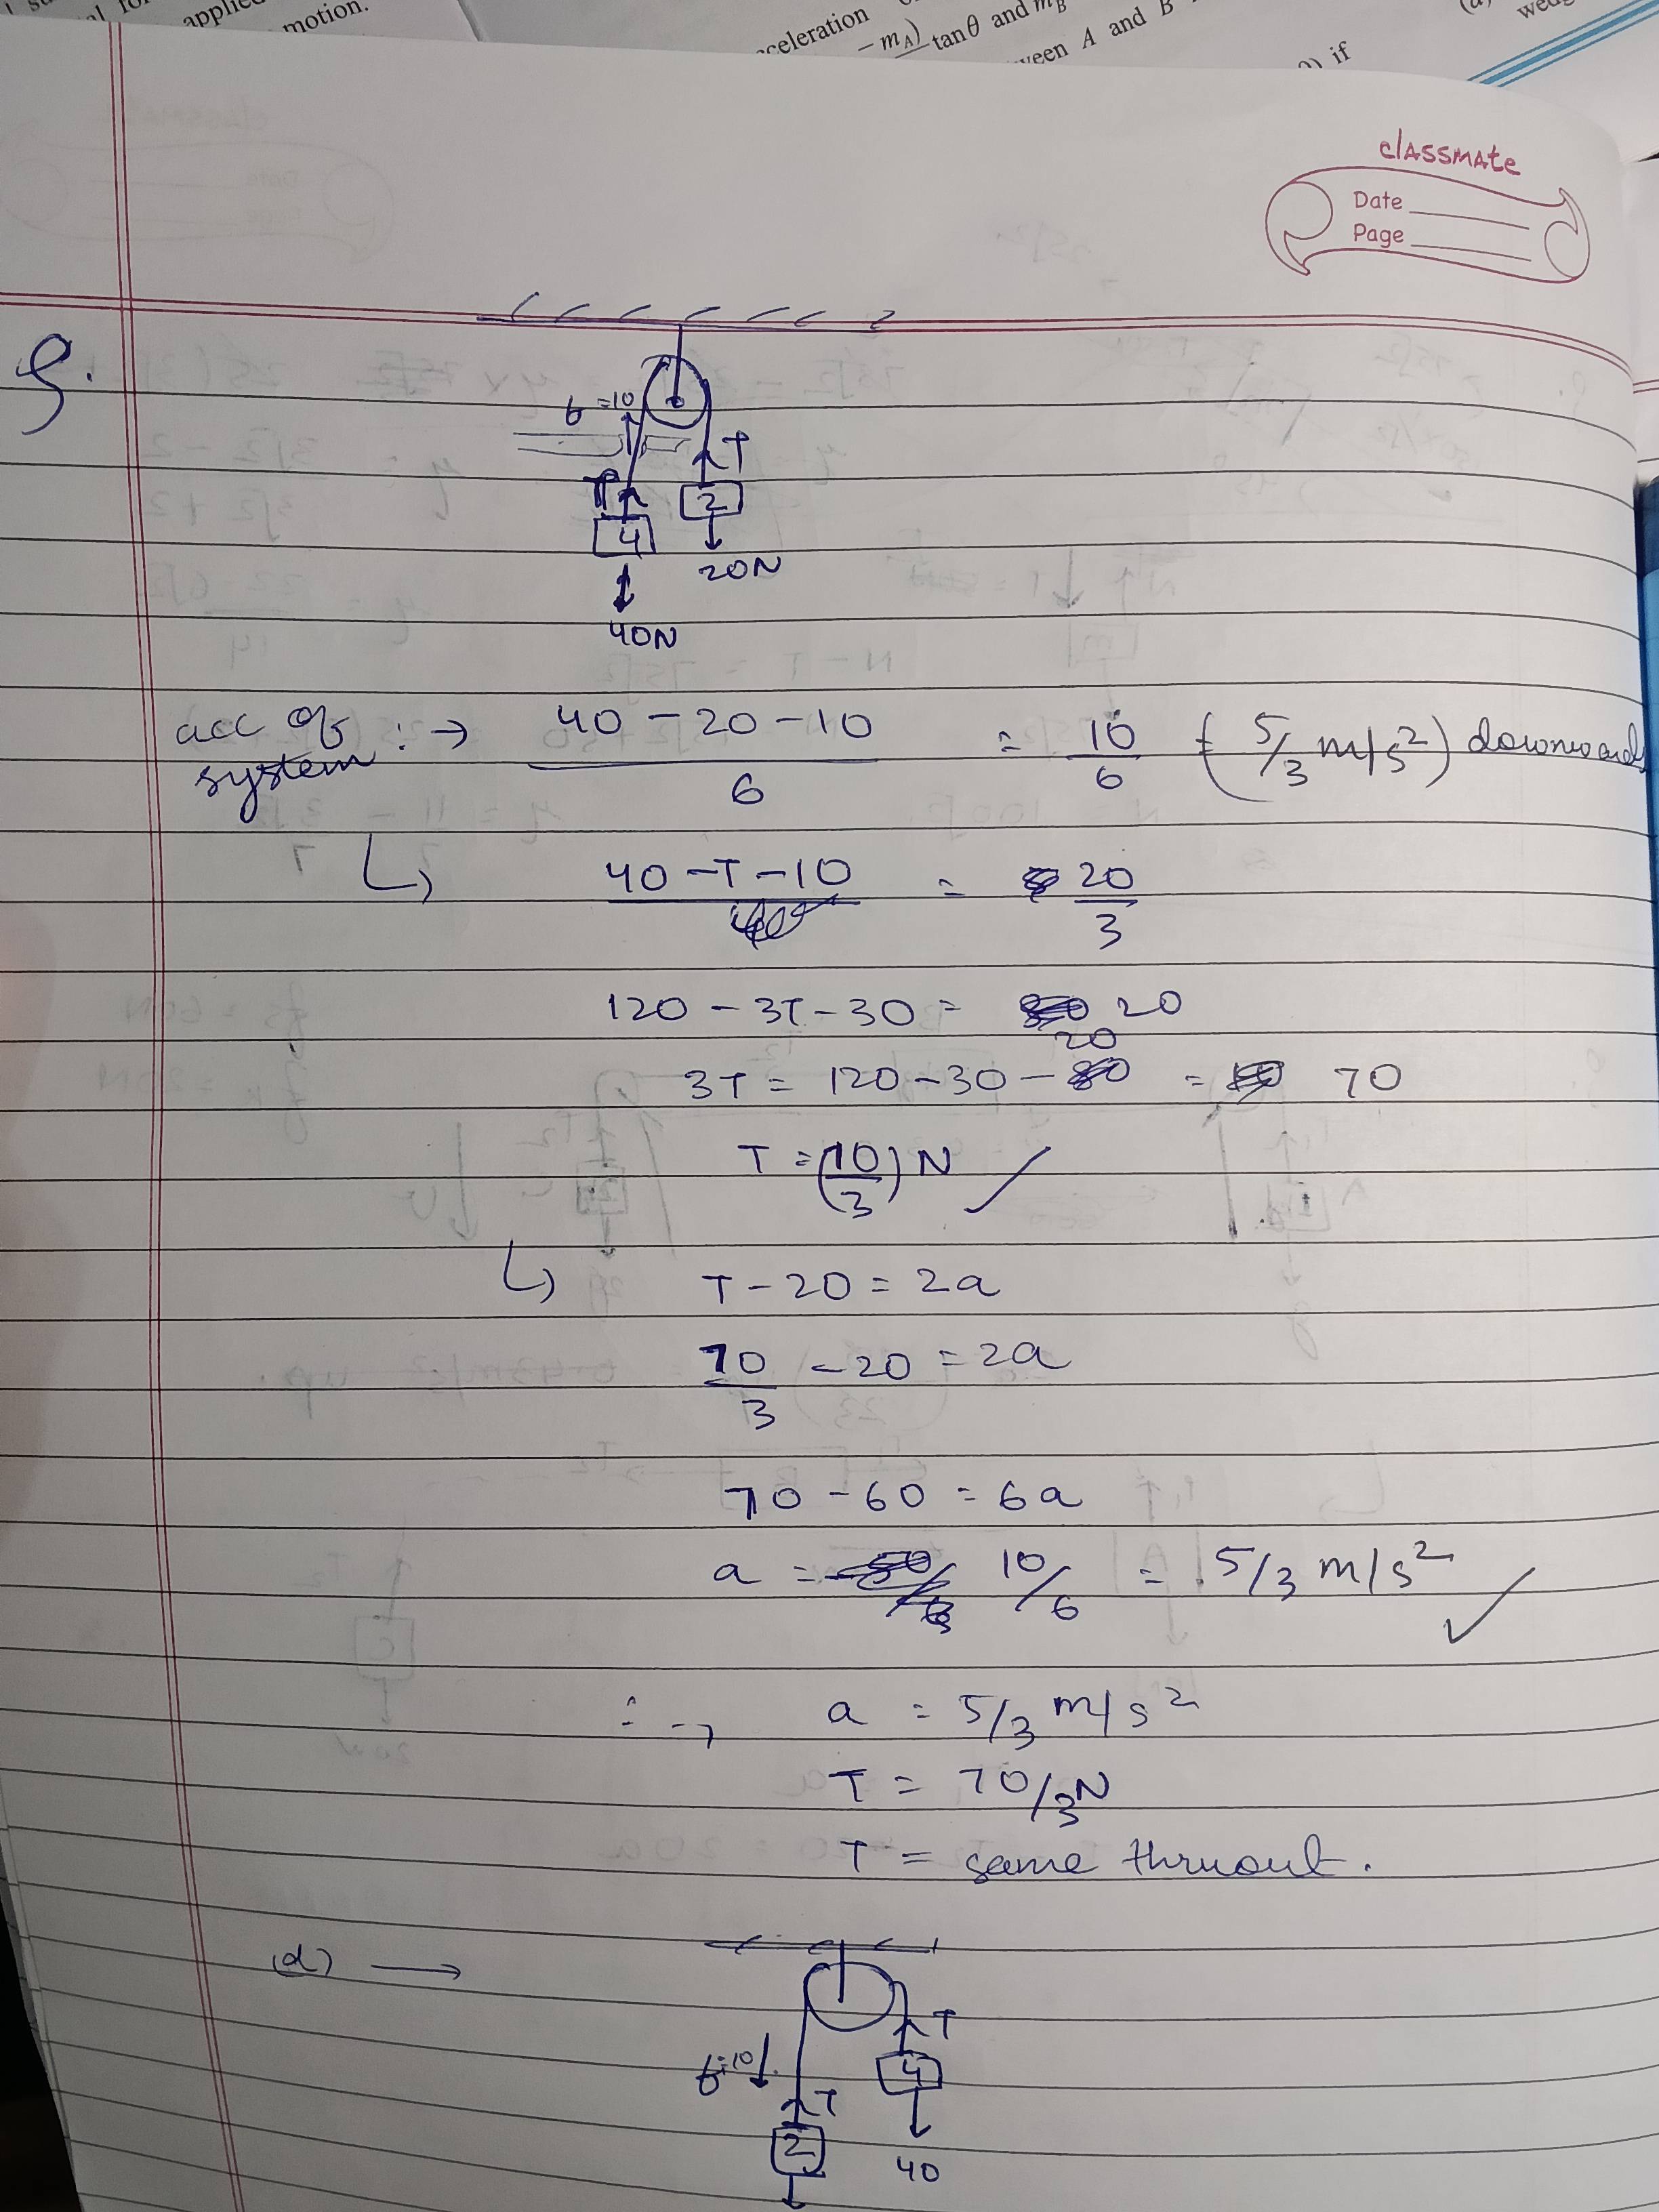 applied
motion.
celeration
– mA) tanθ and mB
ween A and B
if
classmate
Date
Page
Q.
f = 10
T
T
4
2
20N
40N
acc of system :→ 40 – 20 – 10 / 6 = 10/6 = (5/3 m/s²) downward
↳ 40 – T – 10 = 20/3
120 – 3T – 30 = 20
3T = 120 – 30 – 20 = 70
T = (70/3) N ✓
↳ T – 20 = 2a
70/3 – 20 = 2a
70 – 60 = 6a
a = 10/6 = 5/3 m/s² ✓
∴ → a = 5/3 m/s²
T = 70/3 N
T = same thruout.
(d) →
f = 10
T
T
4
2
40